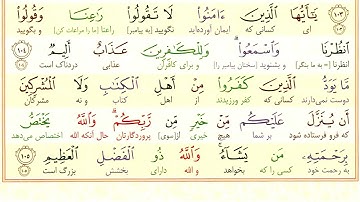 ۱۰۳ يَـٰٓأَيُّهَا ٱلَّذِينَ ءَامَنُوا۟ لَا تَقُولُوا۟ رَٰعِنَا وَقُولُوا۟
ای کسانی که ایمان آورده‌اید نگویید [به پیامبر] راعنا [ما را مراعات کن] و بگویید
ٱنظُرْنَا وَٱسْمَعُوا۟ وَلِلْكَـٰفِرِينَ عَذَابٌ أَلِيمٌ ۱۰۴
انظرنا [= به ما بنگر] و بشنوید [سخنان پیامبر را] و برای کافران عذابی دردناک است
مَّا يَوَدُّ ٱلَّذِينَ كَفَرُوا۟ مِنْ أَهْلِ ٱلْكِتَـٰبِ وَلَا ٱلْمُشْرِكِينَ
دوست نمی‌دارند کسانی که کفر ورزیدند از اهل کتاب و نه مشرکان
أَن يُنَزَّلَ عَلَيْكُم مِّنْ خَيْرٍ مِّن رَّبِّكُمْ وَٱللَّهُ يَخْتَصُّ
که فرو فرستاده شود بر شما هیچ خیری از [سوی] پروردگارتان حال آنکه الله اختصاص می‌دهد
بِرَحْمَتِهِۦ مَن يَشَآءُ وَٱللَّهُ ذُو ٱلْفَضْلِ ٱلْعَظِيمِ ۱۰۵
به رحمت خود کسی را که بخواهد و الله دارای بخشش بزرگ است